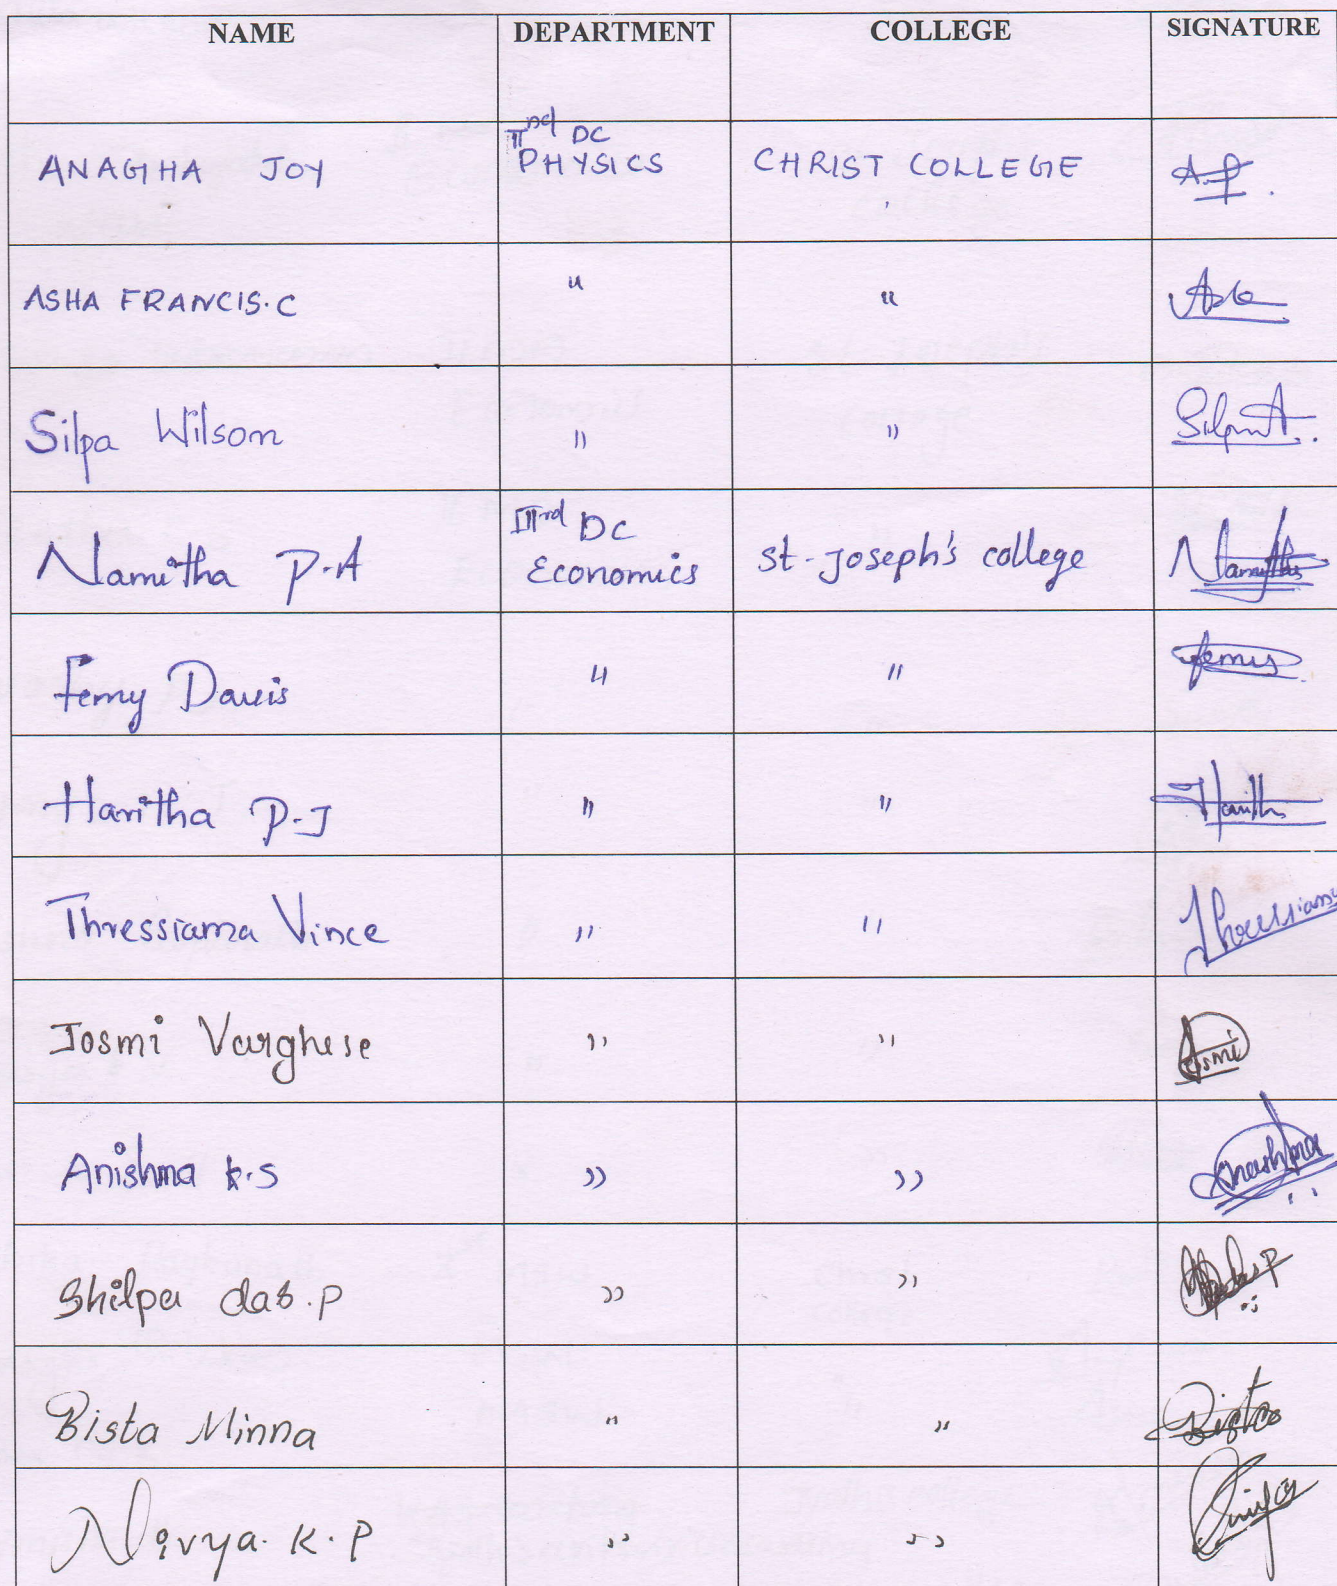 NAME DEPARTMENT COLLEGE SIGNATURE
IInd DC
ANAGHA JOY PHYSICS CHRIST COLLEGE
ASHA FRANCIS.C " " Asha
Silpa Wilson " " Silpa
IIIrd DC
Namitha P.A Economics St. Joseph's college Namitha
Femy Davis " " Femy
Haritha P.J " " Haritha
Thressiama Vince " " Thressiama
Josmi Varghese " " Josmi
Anishma K.S " "
Shilpa das.P " "
Bista Minna " " Bista
Nivya. K. P " "